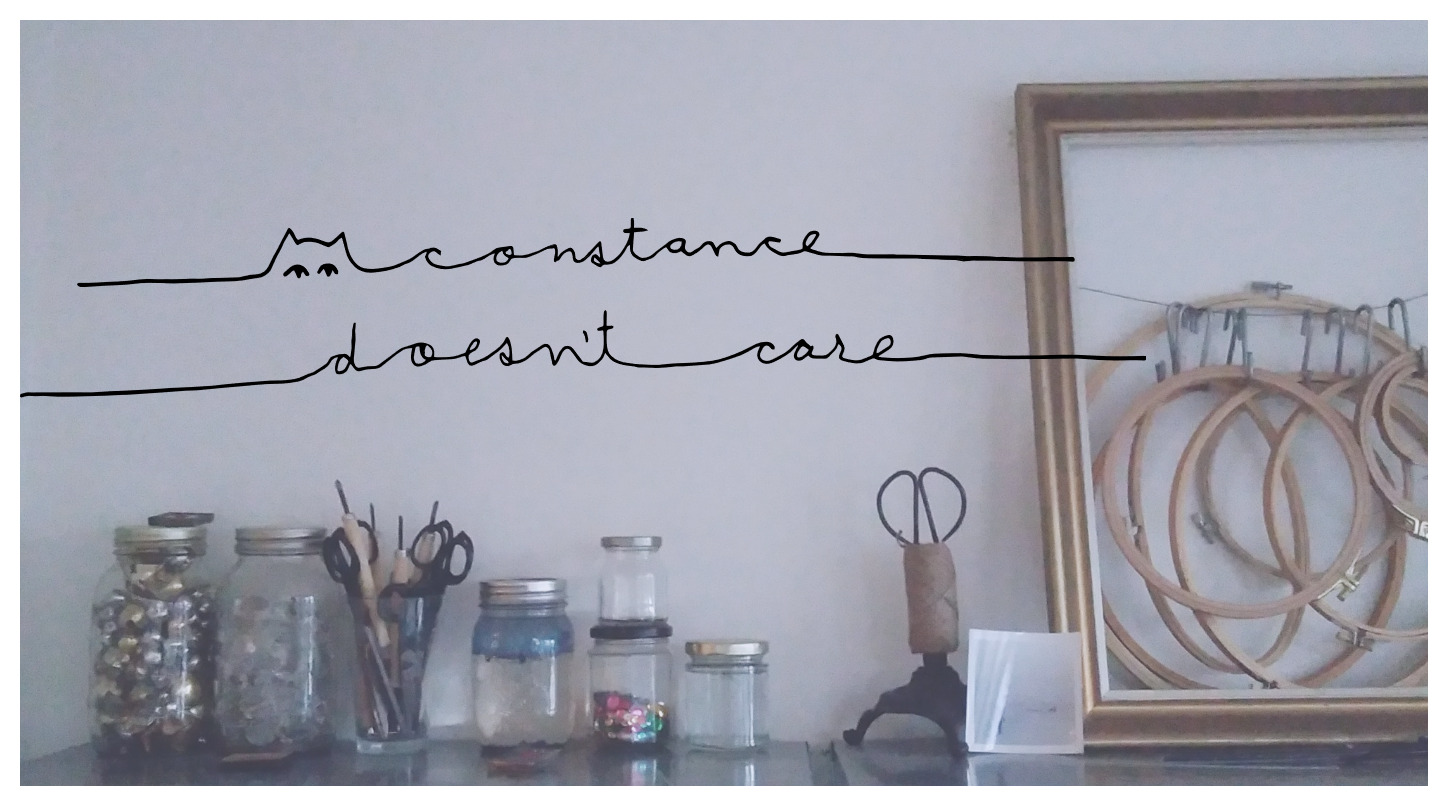 constance
doesn't care